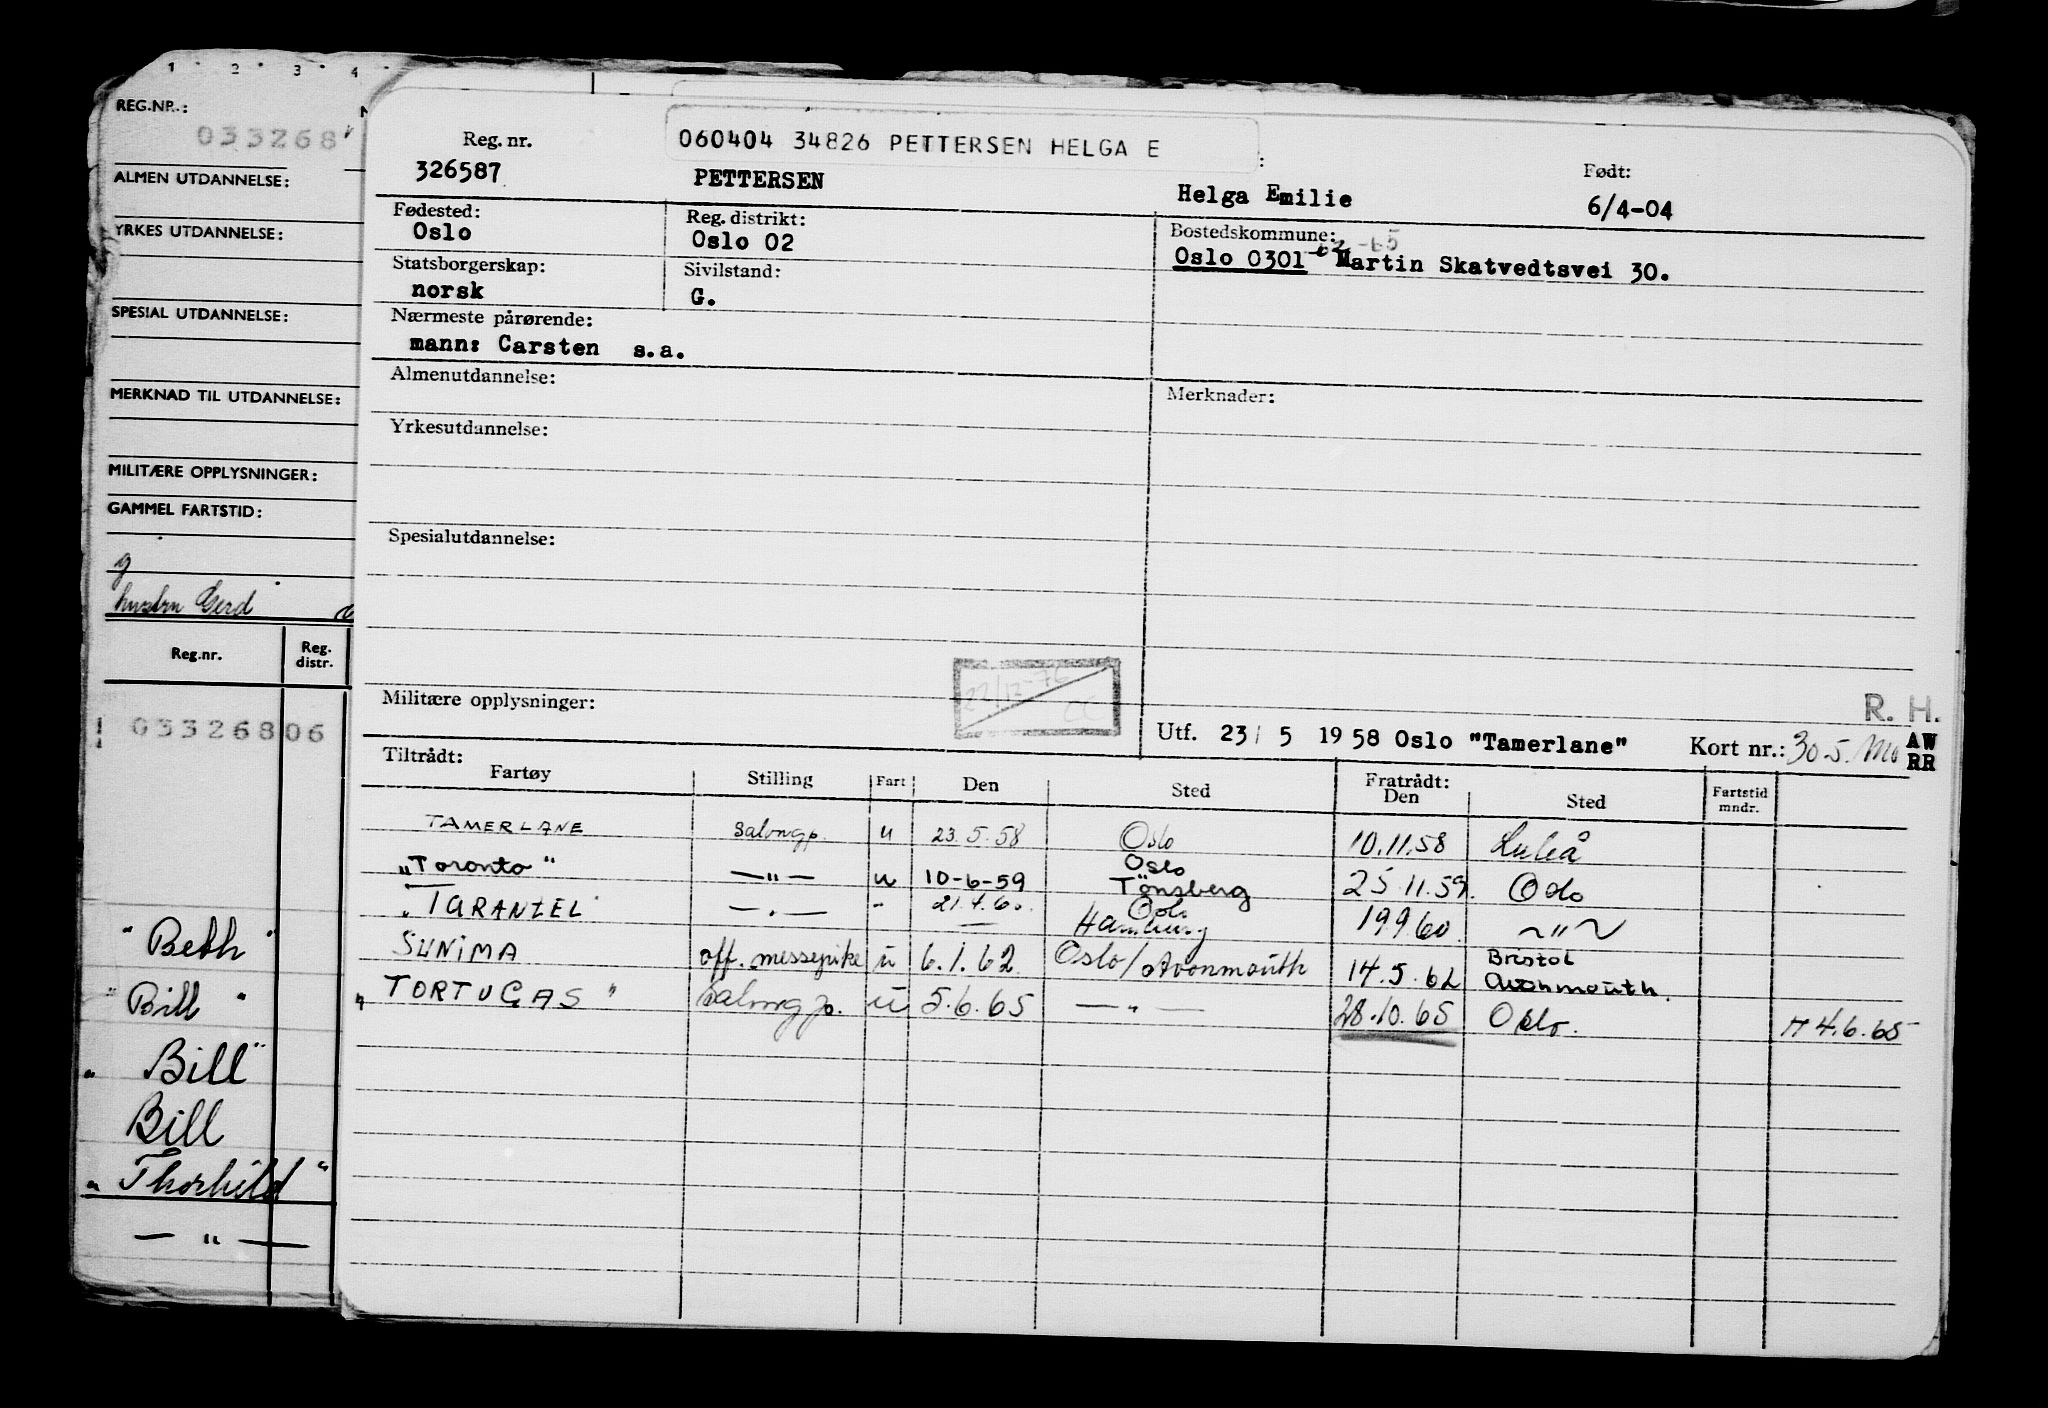 1 2 3 4
REG.NR.:
033268
ALMEN UTDANNELSE:
YRKES UTDANNELSE:
SPESIAL UTDANNELSE:
MERKNAD TIL UTDANNELSE:
MILITÆRE OPPLYSNINGER:
GAMMEL FARTSTID:
g
hustru Gerd
Reg.nr. Reg. distr.
03326806
"Beth"
"Bill"
"Bill"
Bill
"Thorhild"
— " —
060404 34826 PETTERSEN HELGA E
Reg. nr. Født:
326587 PETTERSEN Helga Emilie 6/4-04
Fødested: Reg. distrikt: Bostedskommune:
-65
Oslo Oslo 02 Oslo 0301 Martin Skatvedtsvei 30.
Statsborgerskap: Sivilstand:
norsk G.
Nærmeste pårørende:
mann: Carsten s.a.
Almenutdannelse: Merknader:
Yrkesutdannelse:
Spesialutdannelse:
22/12-76
CC
R. H.
Militære opplysninger:
Utf. 23/ 5 1958 Oslo "Tamerlane" Kort nr.: 30-5. Mo AW RR
Tiltrådt: Fratrådt:
Fartøy Stilling Fart Den Sted Den Sted Fartstid mndr.
TAMERLANE Salongp. u 23.5.58 Oslo 10.11.58 Luleå
Oslo
"Toronto" —"— u 10-6-59 Tönsberg 25.11.59. Oslo
Oslo
"TARANTEL —"— - 21.4.60. Hamburg 19960 ~"~
SUNIMA off. messepike u 6.1.62 Oslo/Avonmouth 14.5.62 Bristol Avonmouth.
"TORTUGAS" Salongp. u 5.6.65 —"— 28.10.65 Oslo. H 4.6.65